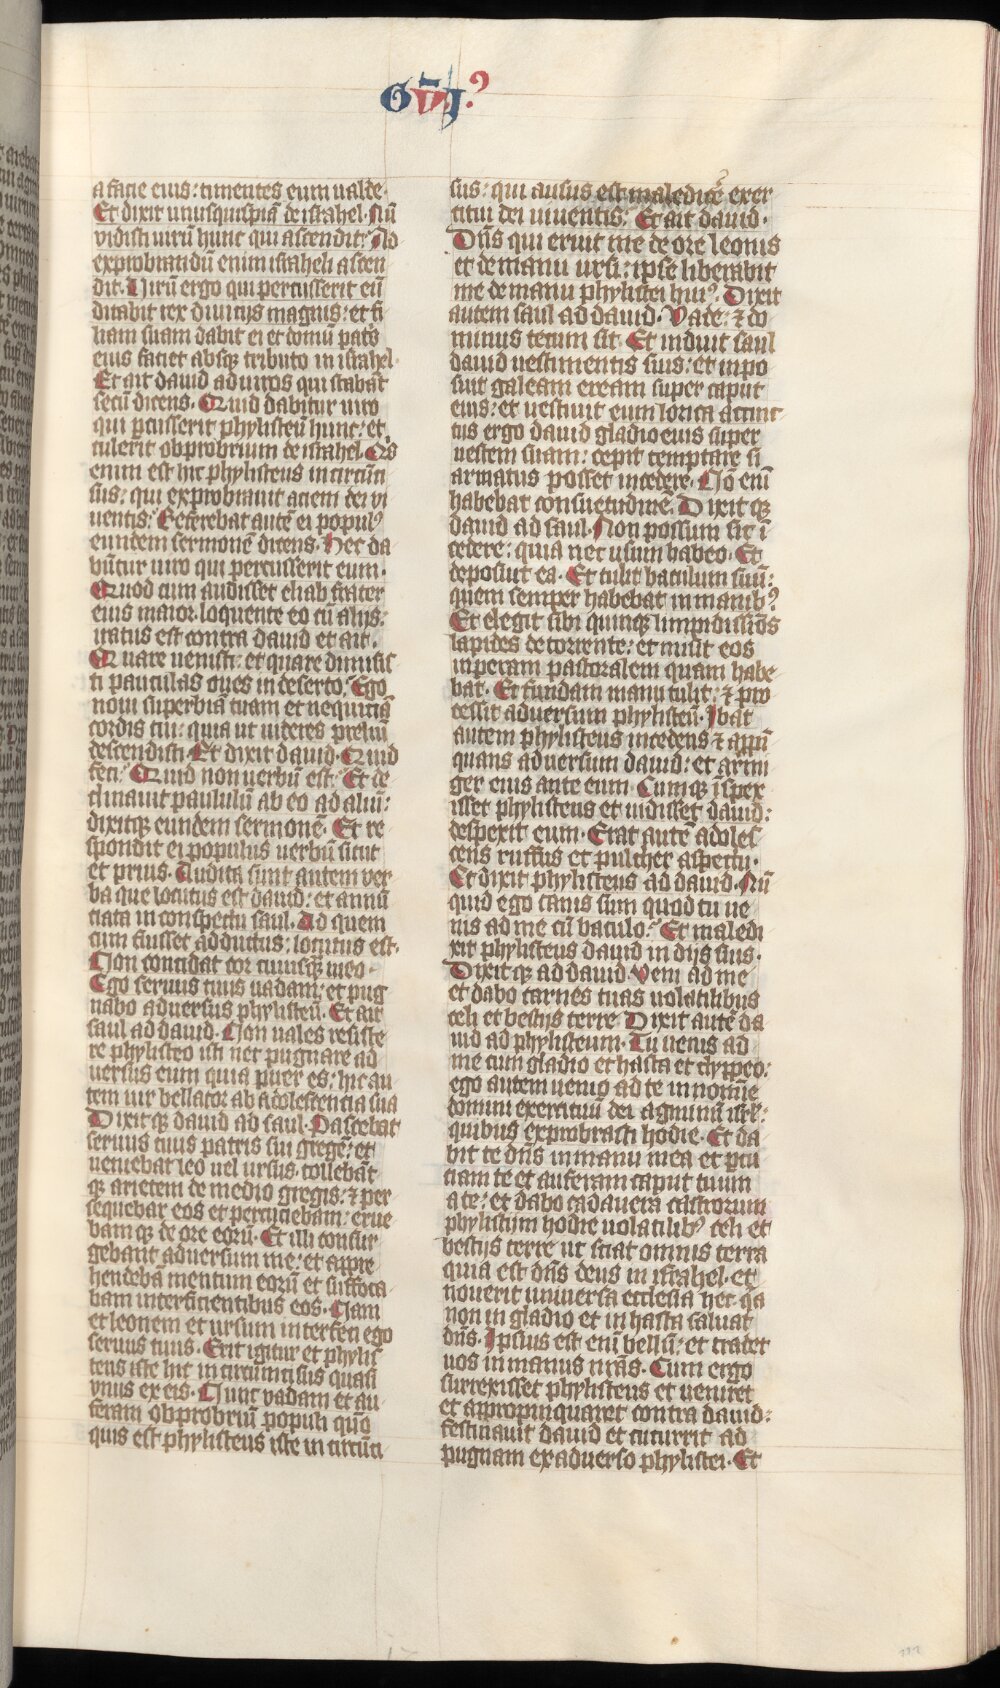 GVI.⁹
a facie eius: timentes eum ualde.
Et dixit unusquispiā de israhel. Nū
vidisti uirū hunc qui ascendit: Ad
exprobrandū enim israheli ascen
dit. Uirū ergo qui percusserit eū
ditabit rex diuitijs magnis: et fi
liam suam dabit ei et domū patris
eius faciet absq̨ tributo in israhel.
Et ait dauid ad uiros qui stabāt
secū dicens. Quid dabitur uiro
qui pcusserit phylisteū hunc: et
tulerit obprobrium de israhel. Qs
enim est hic phylisteus incircūci
sus: qui exprobrauit aciem dei vi
uentis: Referebat autē ei popul⁹
eundem sermonē dicens. Hec da
būtur uiro qui percusserit eum.
Quod cum audisset eliab frater
eius maior. loquente eo cū alijs:
iratus est contra dauid et ait.
Quare uenisti: et quare dimisis
ti pauculas oues in deserto: Ego
noui superbiā tuam et nequiciā
cordis tui: quia ut uideres preliū
descendisti. Et dixit dauid. Quid
feci: Quid non uerbū est: Et de
clinauit paululū ab eo ad aliū:
dixitq̨ eundem sermonē. Et re
spondit ei populus uerbū sicut
et prius. Audita sunt autem ver
ba que locutus est dauid: et annū
tiata in conspectu saul. Ad quem
cum fuisset adductus: locutus est.
Non concidat cor cuiusq̨ in eo.
Ego seruus tuus uadam: et pug
nabo aduersus phylisteū. Et ait
saul ad dauid. Non uales resiste
re phylisteo isti nec pugnare ad
uersus eum quia puer es: hic au
tem uir bellator ab adolescencia sua
Dixitq̨ dauid ad saul. Pascebat
seruus tuus patris sui gregē: et
ueniebat leo uel ursus. tollebāt
q̨ arietem de medio gregis: ⁊ per
sequebar eos et percuciebam: erue
bamq̨ de ore eorū. Et illi consur
gebant aduersum me: et appre
hendebā mentum eorū et suffoca
bam interficientibus eos. Nam
et leonem et ursum interfeci ego
seruus tuus. Erit igitur et phylis
teus iste hic incircumcisus quasi
vnus ex eis. Nunc vadam et au
feram obprobriū populi qūo
quis est phylisteus iste incircūci
sus: qui ausus est maledicē exer
citui dei uiuentis: Et ait dauid.
Dn̄s qui eruit me de ore leonis
et de manu ursi: ipse liberabit
me de manu phylistei hui⁹. Dixit
autem saul ad dauid. Vade: ⁊ do
minus tecum sit. Et induit saul
dauid uestimentis suis: et inpo
suit galeam eream super caput
eius: et uestiuit eum lorica. accinc
tus ergo dauid gladio eius super
uestem suam: cepit temptare si
armatus posset incedere. Nō enī
habebat consuetudinē. Dixitq̨
dauid ad saul. Non possum sic ī
cedere: quia nec usum habeo. Et
deposuit ea. Et tulit baculum suū:
quem semper habebat in manib⁹:
Et elegit sibi quinq̨ limpidissīos
lapides de torrente: et misit eos
in peram pastoralem quam habe
bat. Et fundam manu tulit: ⁊ pro
cessit aduersum phylisteū. Ibat
autem phylisteus incedens ⁊ app̄ī
quans aduersum dauid: et armi
ger eius ante eum. Cumq̨ īspex
isset phylisteus et uidisset dauid:
despexit eum. Erat autē adoles
cens ruffus et pulcher aspectu.
Et dixit phylisteus ad dauid. Nū
quid ego canis sum quod tu ue
nis ad me cū baculo: Et maledi
xit phylisteus dauid in dijs suis.
Dixitq̨ ad dauid. Veni ad me
et dabo carnes tuas uolatilibus
celi et bestijs terre. Dixit autē da
uid ad phylisteum. Tu uenis ad
me cum gladio et hasta et clyppeo:
ego autem uenio ad te in nomīe
domini exercituū dei agminū isrl:
quibus exprobrasti hodie. Et da
bit te dn̄s in manu mea et pcu
ciam te et auferam caput tuum
a te: et dabo cadauera castrorum
phylistijm hodie uolatilib⁹ celi et
bestijs terre ut sciat omnis terra
quia est dn̄s deus in israhel. et
nouerit uniuersa ecclesia hec qa
non in gladio et in hasta saluat
dn̄s. Ipsius est enī bellū: et tradet
uos in manus nrās. Cum ergo
surrexisset phylisteus et ueniret
et appropinquaret contra dauid:
festinauit dauid et cucurrit ad
pugnam ex aduerso phylistei. Et